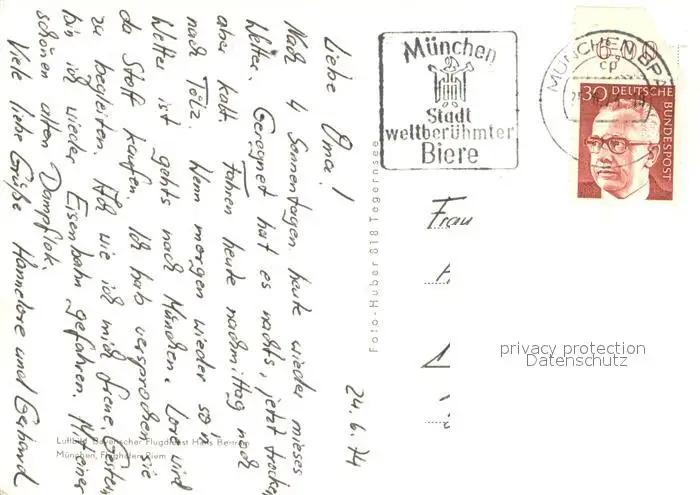 Liebe Oma!
Nach 4 Sonnentagen heute wieder mieses
Wetter. Geregnet hat es nachts, jetzt trocken
aber kalt. Fahren heute nachmittag noch
nach Tölz. Wenn morgen wieder so'n
Wetter ist gehts nach München. Lore wird
da Stoff kaufen. Ich hab versprochen sie
zu begleiten. Ach wie ich mich freue. Gestern
bin ich wieder Eisenbahn gefahren. Mit einer
schönen alten Dampflok.
Viele liebe Grüße Hannelore und Gerhard
24.6.74
Luftbild Bayerischer Flugdienst Hans Bertram
München, Flughafen Riem
Foto-Huber 818 Tegernsee
München
Stadt
weltberühmter
Biere
MÜNCHEN BPA
cp
6,00
30 DEUTSCHE
BUNDESPOST
Frau
privacy protection
Datenschutz